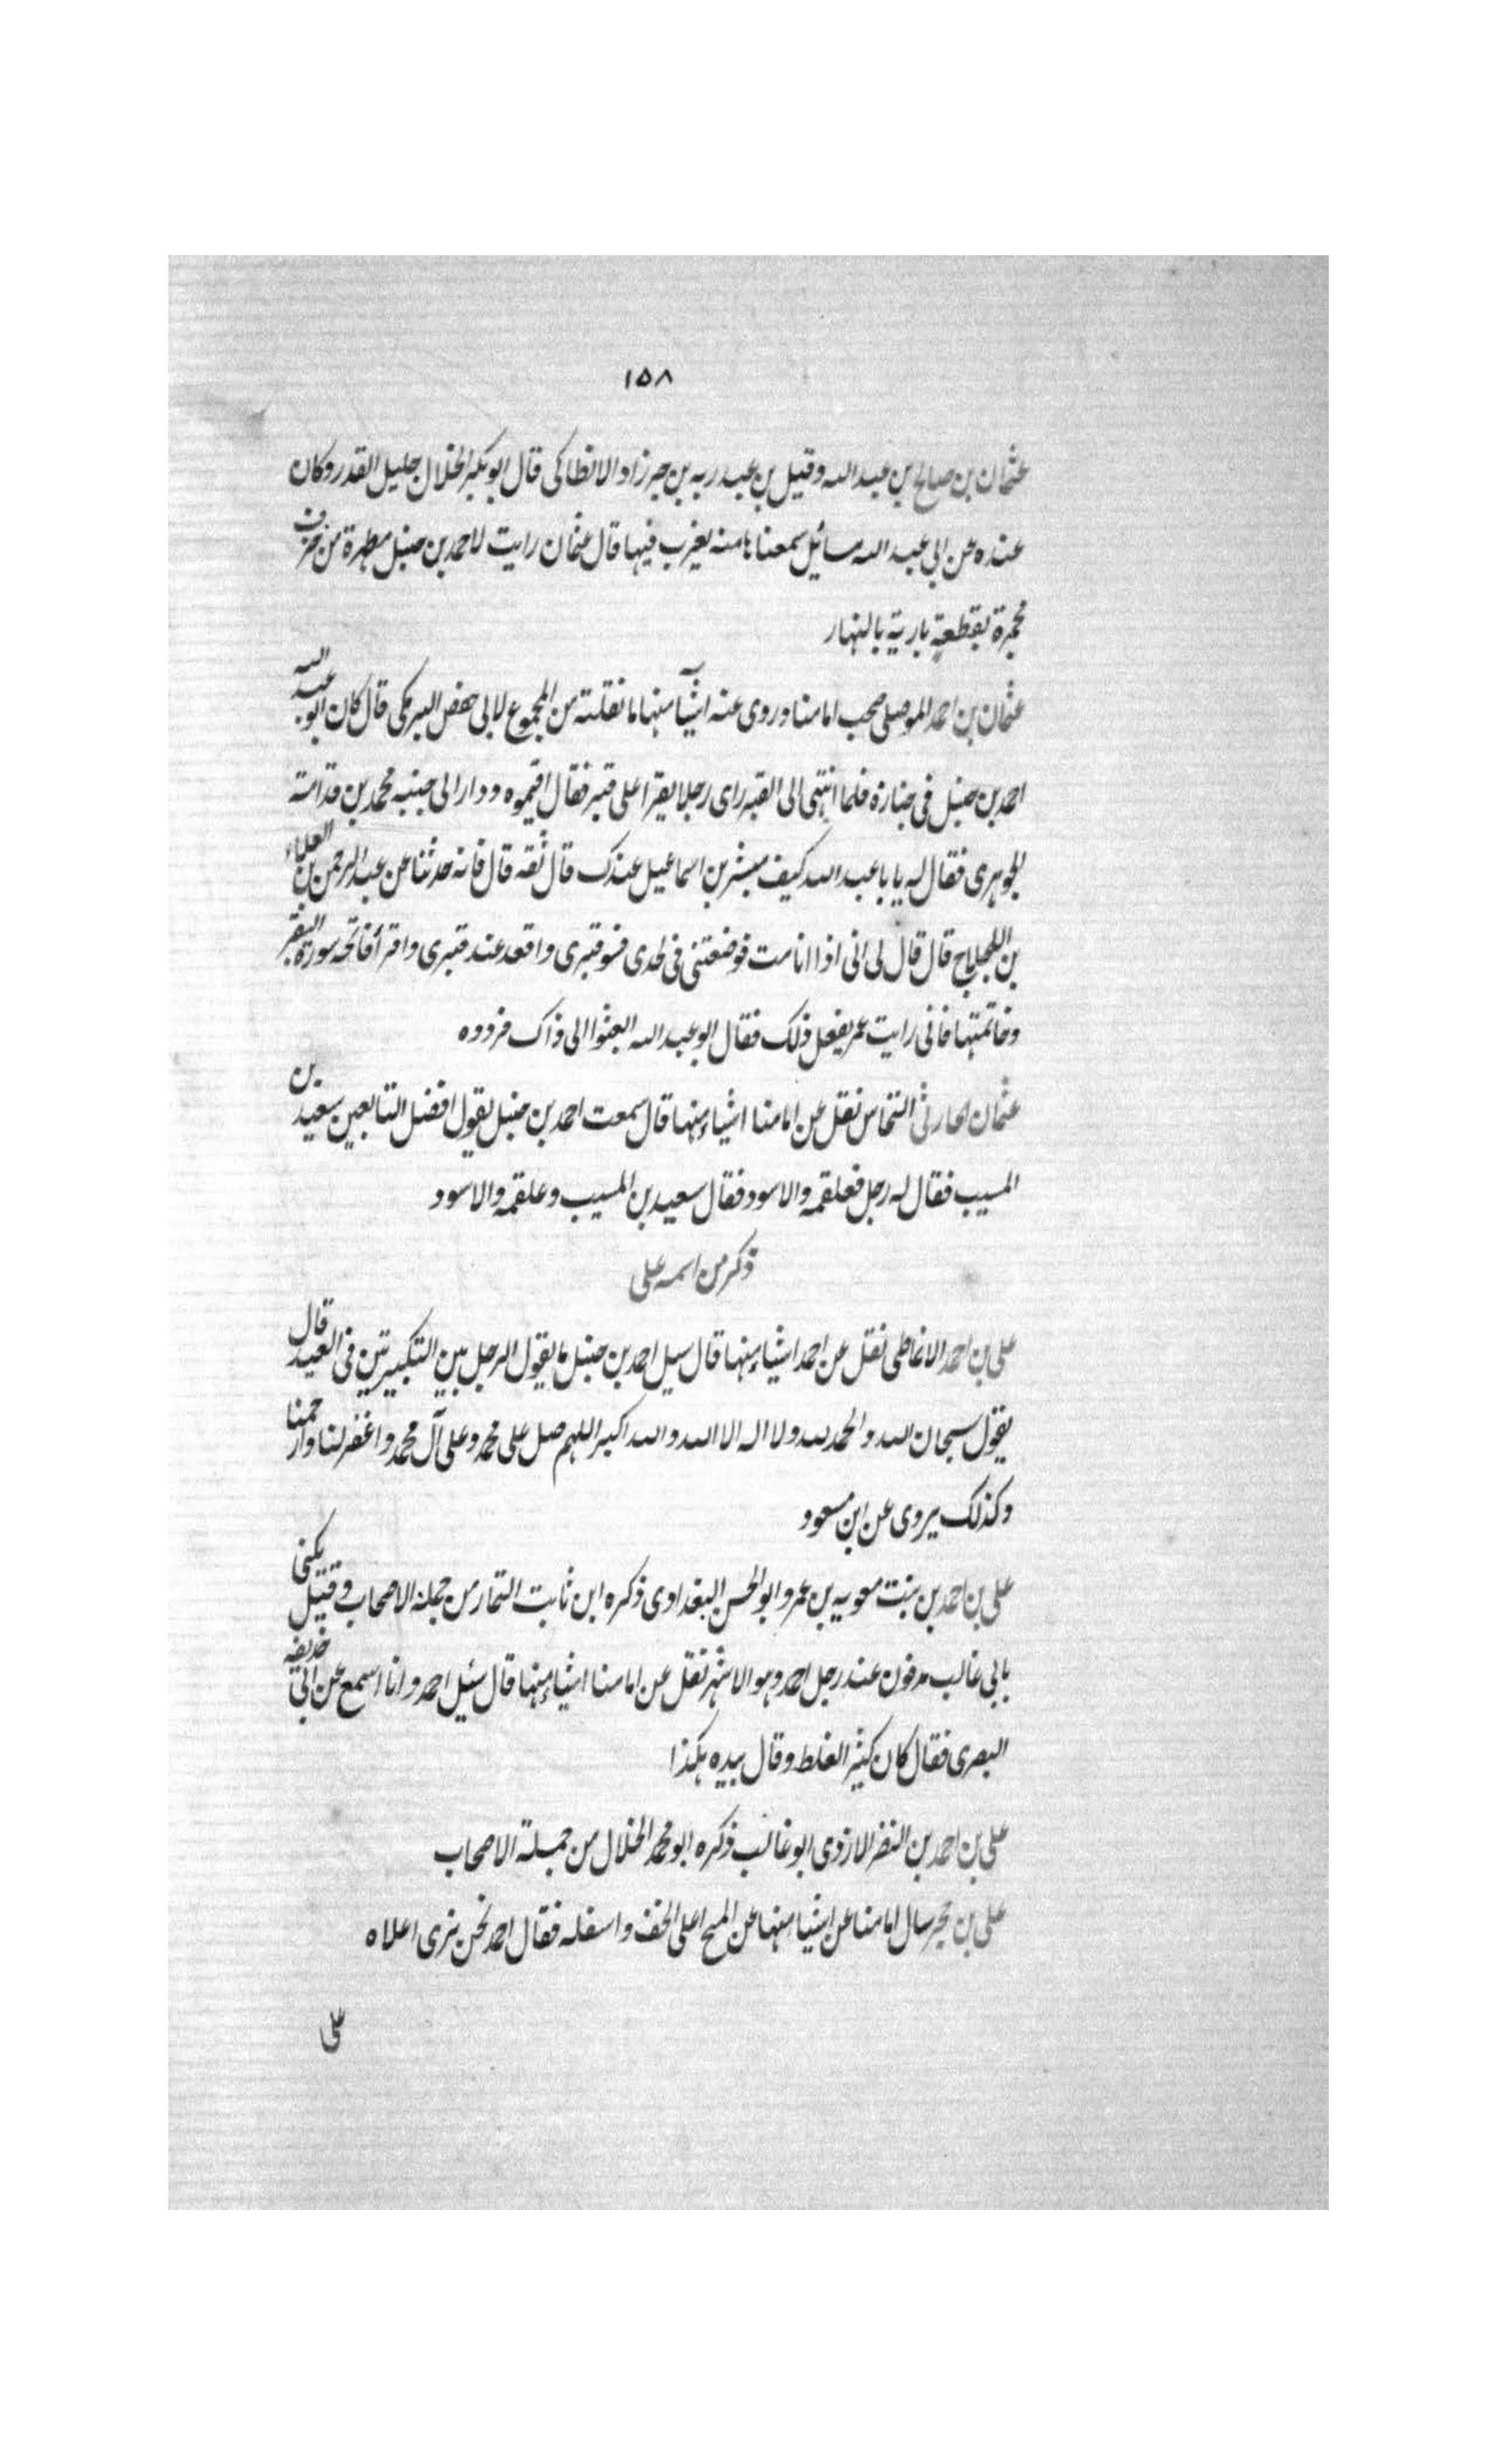 ١٥٨
عثمان بن صالح بن عبد الله وقيل بن عبد ربه بن خرزاد الانطاكى قال ابو بكر الخلال جليل القدر وكان
عنده عن ابى عبد الله مسائل سمعناها منه يغرب فيها قال عثمان رايت لاحمد بن حنبل مطهرة من خزف
مخمرة بقطعة بارية بالنهار
عثمان بن احمد الموصلى صحب امامنا وروى عنه اشيآ منها ما نقلته من المجموع لابى حفص البرمكى قال كان ابو عبد الله
احمد بن حنبل فى جنازة فلما انتهى الى القبر راى رجلا يقرا على قبر فقال اقيموه ودار الى جنبه محمد بن قدامة
الجوهرى فقال له يا با عبد الله كيف مبشر بن اسماعيل عندك قال ثقه قال فانه حدثنا عن عبد الرحمن بن العلاء
بن اللجلاج قال قال لى ابى اذا انا مت فوضعتنى فى لحدى فسو قبرى واقعد عند قبرى واقرأ فاتحه سورة البقر
وخاتمتها فانى رايت عمر يفعل ذلك فقال ابو عبد الله ابعثوا الى ذاك فردوه
عثمان الحارثى النحاس نقل عن امامنا اشياء منها قال سمعت احمد بن حنبل يقول افضل التابعين سعيد بن
المسيب فقال له رجل فعلقمه والاسود فقال سعيد بن المسيب وعلقمه والاسود
ذكر من اسمه على
على بن احمد الانماطى نقل عن احمد اشياء منها قال سيل احمد بن حنبل ما يقول الرجل بين التكبيرتين فى العيد قال
يقول سبحان الله والحمد لله ولا اله الا الله والله اكبر اللهم صل على محمد وعلى آل محمد واغفر لنا وارحمنا
وكذلك يروى عن ابن مسعود
على بن احمد بن بنت معويه بن عمرو ابو الحسن البغدادى ذكره ابن ثابت التمار من جملة الاصحاب وقيل يكنى
بابى غالب مدفون عند رجل احمد وهو الاشهر نقل عن امامنا اشياء منها قال سئل احمد وانا اسمع عن ابى حذيفه
البصرى فقال كان كثير الغلط وقال بيده هكذا
على بن احمد بن النضر الازدى ابو غالب ذكره ابو محمد الخلال من جملة الاصحاب
على بن حجر سال امامنا عن اشيا منها عن المسح اعلى الخف واسفله فقال احمد نحن نرى اعلاه
على